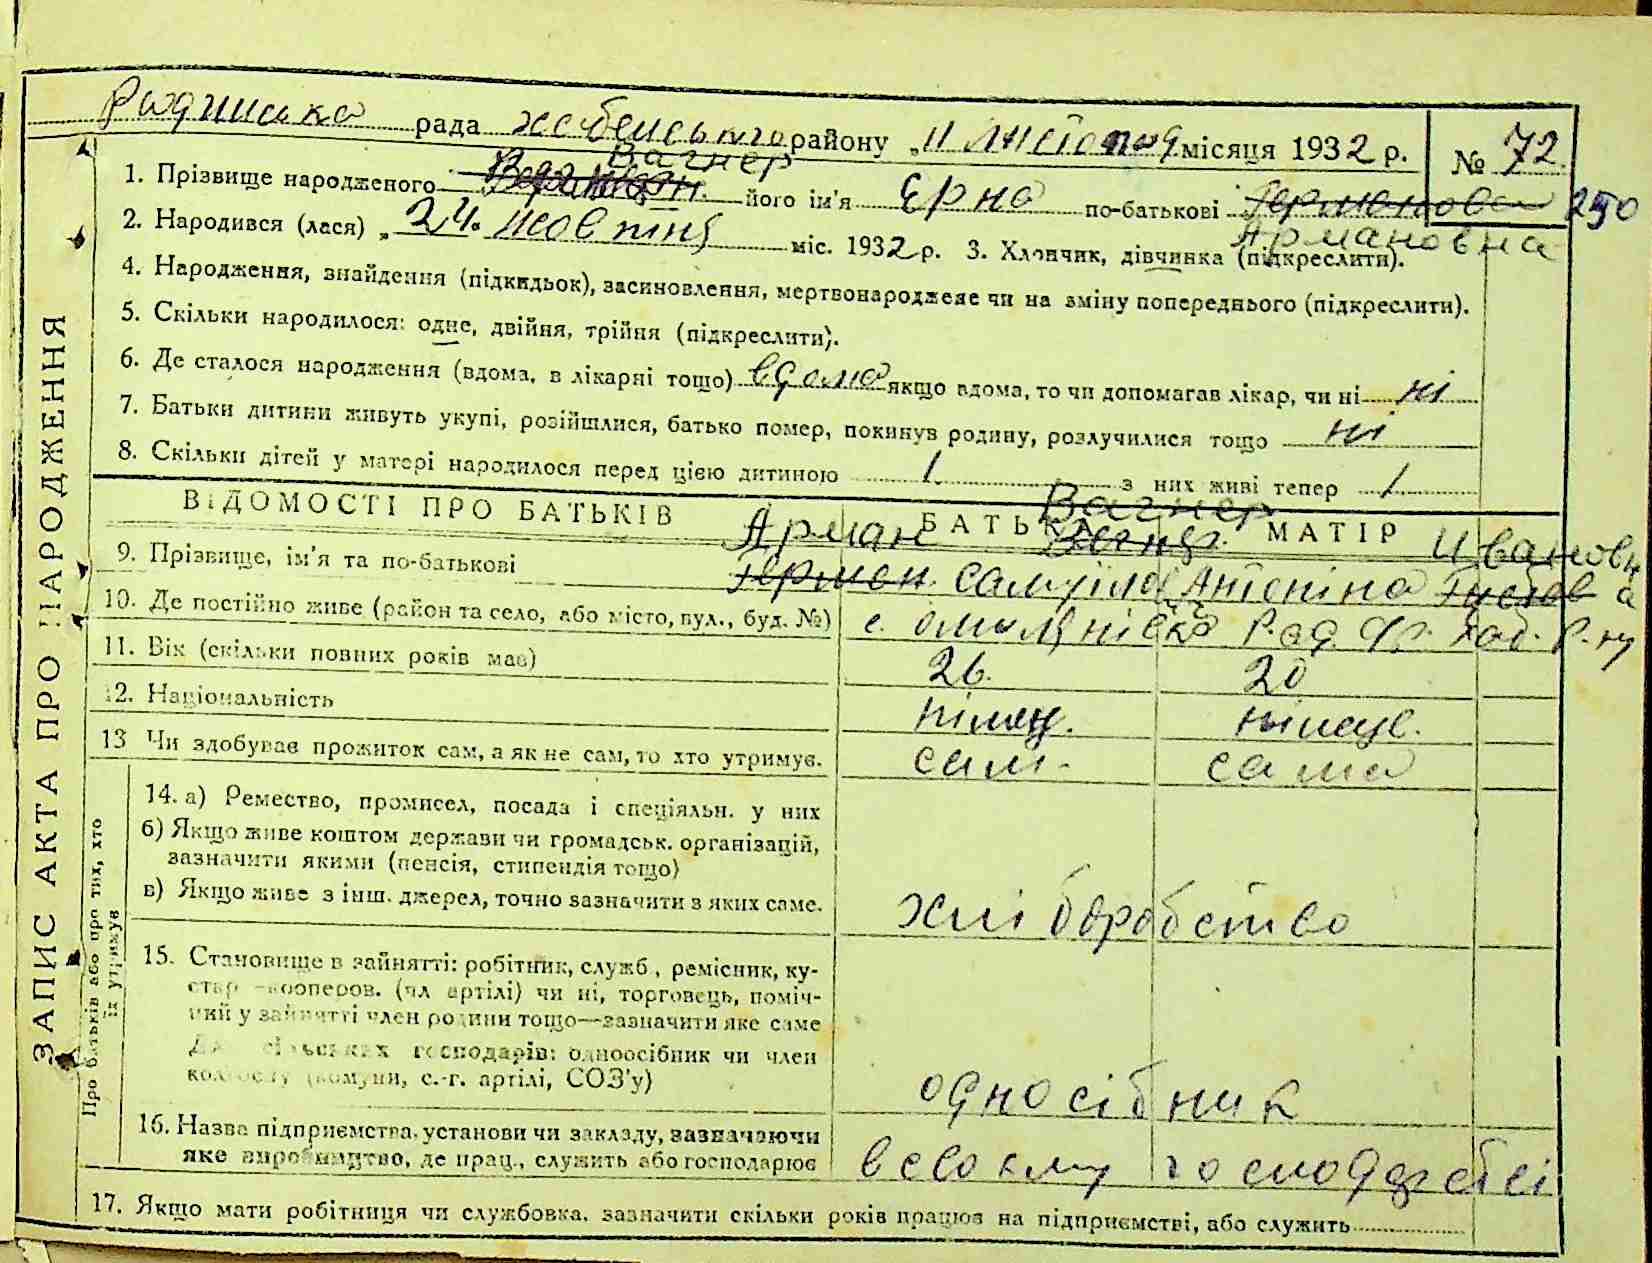 рада хабенського району „11 листопад місяця 1932 р. № 72
250
1. Прізвище народженого Вагнер його ім'я Ерна по-батькові Германова Армановна
2. Народився (лася) „24. жовтня міс. 1932 р. 3. Хлопчик, дівчинка (підкреслити).
4. Народження, знайдення (підкидьок), засиновлення, мертвонароджене чи на зміну попереднього (підкреслити).
5. Скільки народилося: одне, двійня, трійня (підкреслити).
6. Де сталося народження (вдома, в лікарні тощо) вдома якщо вдома, то чи допомагав лікар, чи ні ні
7. Батьки дитини живуть укупі, розійшлися, батько помер, покинув родину, розлучилися тощо ні
8. Скільки дітей у матері народилося перед цією дитиною 1 з них живі тепер 1
ЗАПИС АКТА ПРО НАРОДЖЕННЯ
ВІДОМОСТІ ПРО БАТЬКІВ БАТЬКА МАТІР
Арман Вагнер Ивановна
9. Прізвище, ім'я та по-батькові Герман Самуїлов Антоніна Густав
10. Де постійно живе (район та село, або місто, вул., буд. №) с.
11. Вік (скільки повних років має) 26. 20
12. Національність німец. німец.
13 Чи здобуває прожиток сам, а як не сам, то хто утримує. сам. сама
Про батьків або про тих, хто їх утримує
14. а) Ремество, промисел, посада і спеціяльн. у них
б) Якщо живе коштом держави чи громадськ. організацій,
зазначити якими (пенсія, стипендія тощо)
в) Якщо живе з інш. джерел, точно зазначити з яких саме.
хліборобство
15. Становище в зайнятті: робітник, служб., ремісник, ку-
стар -кооперов. (чл артілі) чи ні, торговець, поміч-
ний у зайнятті член родини тощо—зазначити яке саме
Для сільських господарів: одноосібник чи член
колгоспу (комуни, с.-г. артілі, СОЗ'у)
односібник
16. Назва підприємства, установи чи закладу, зазначаючи
яке виробництво, де прац., служить або господарює
в своєму господарстві
17. Якщо мати робітниця чи службовка, зазначити скільки років працює на підприємстві, або служить